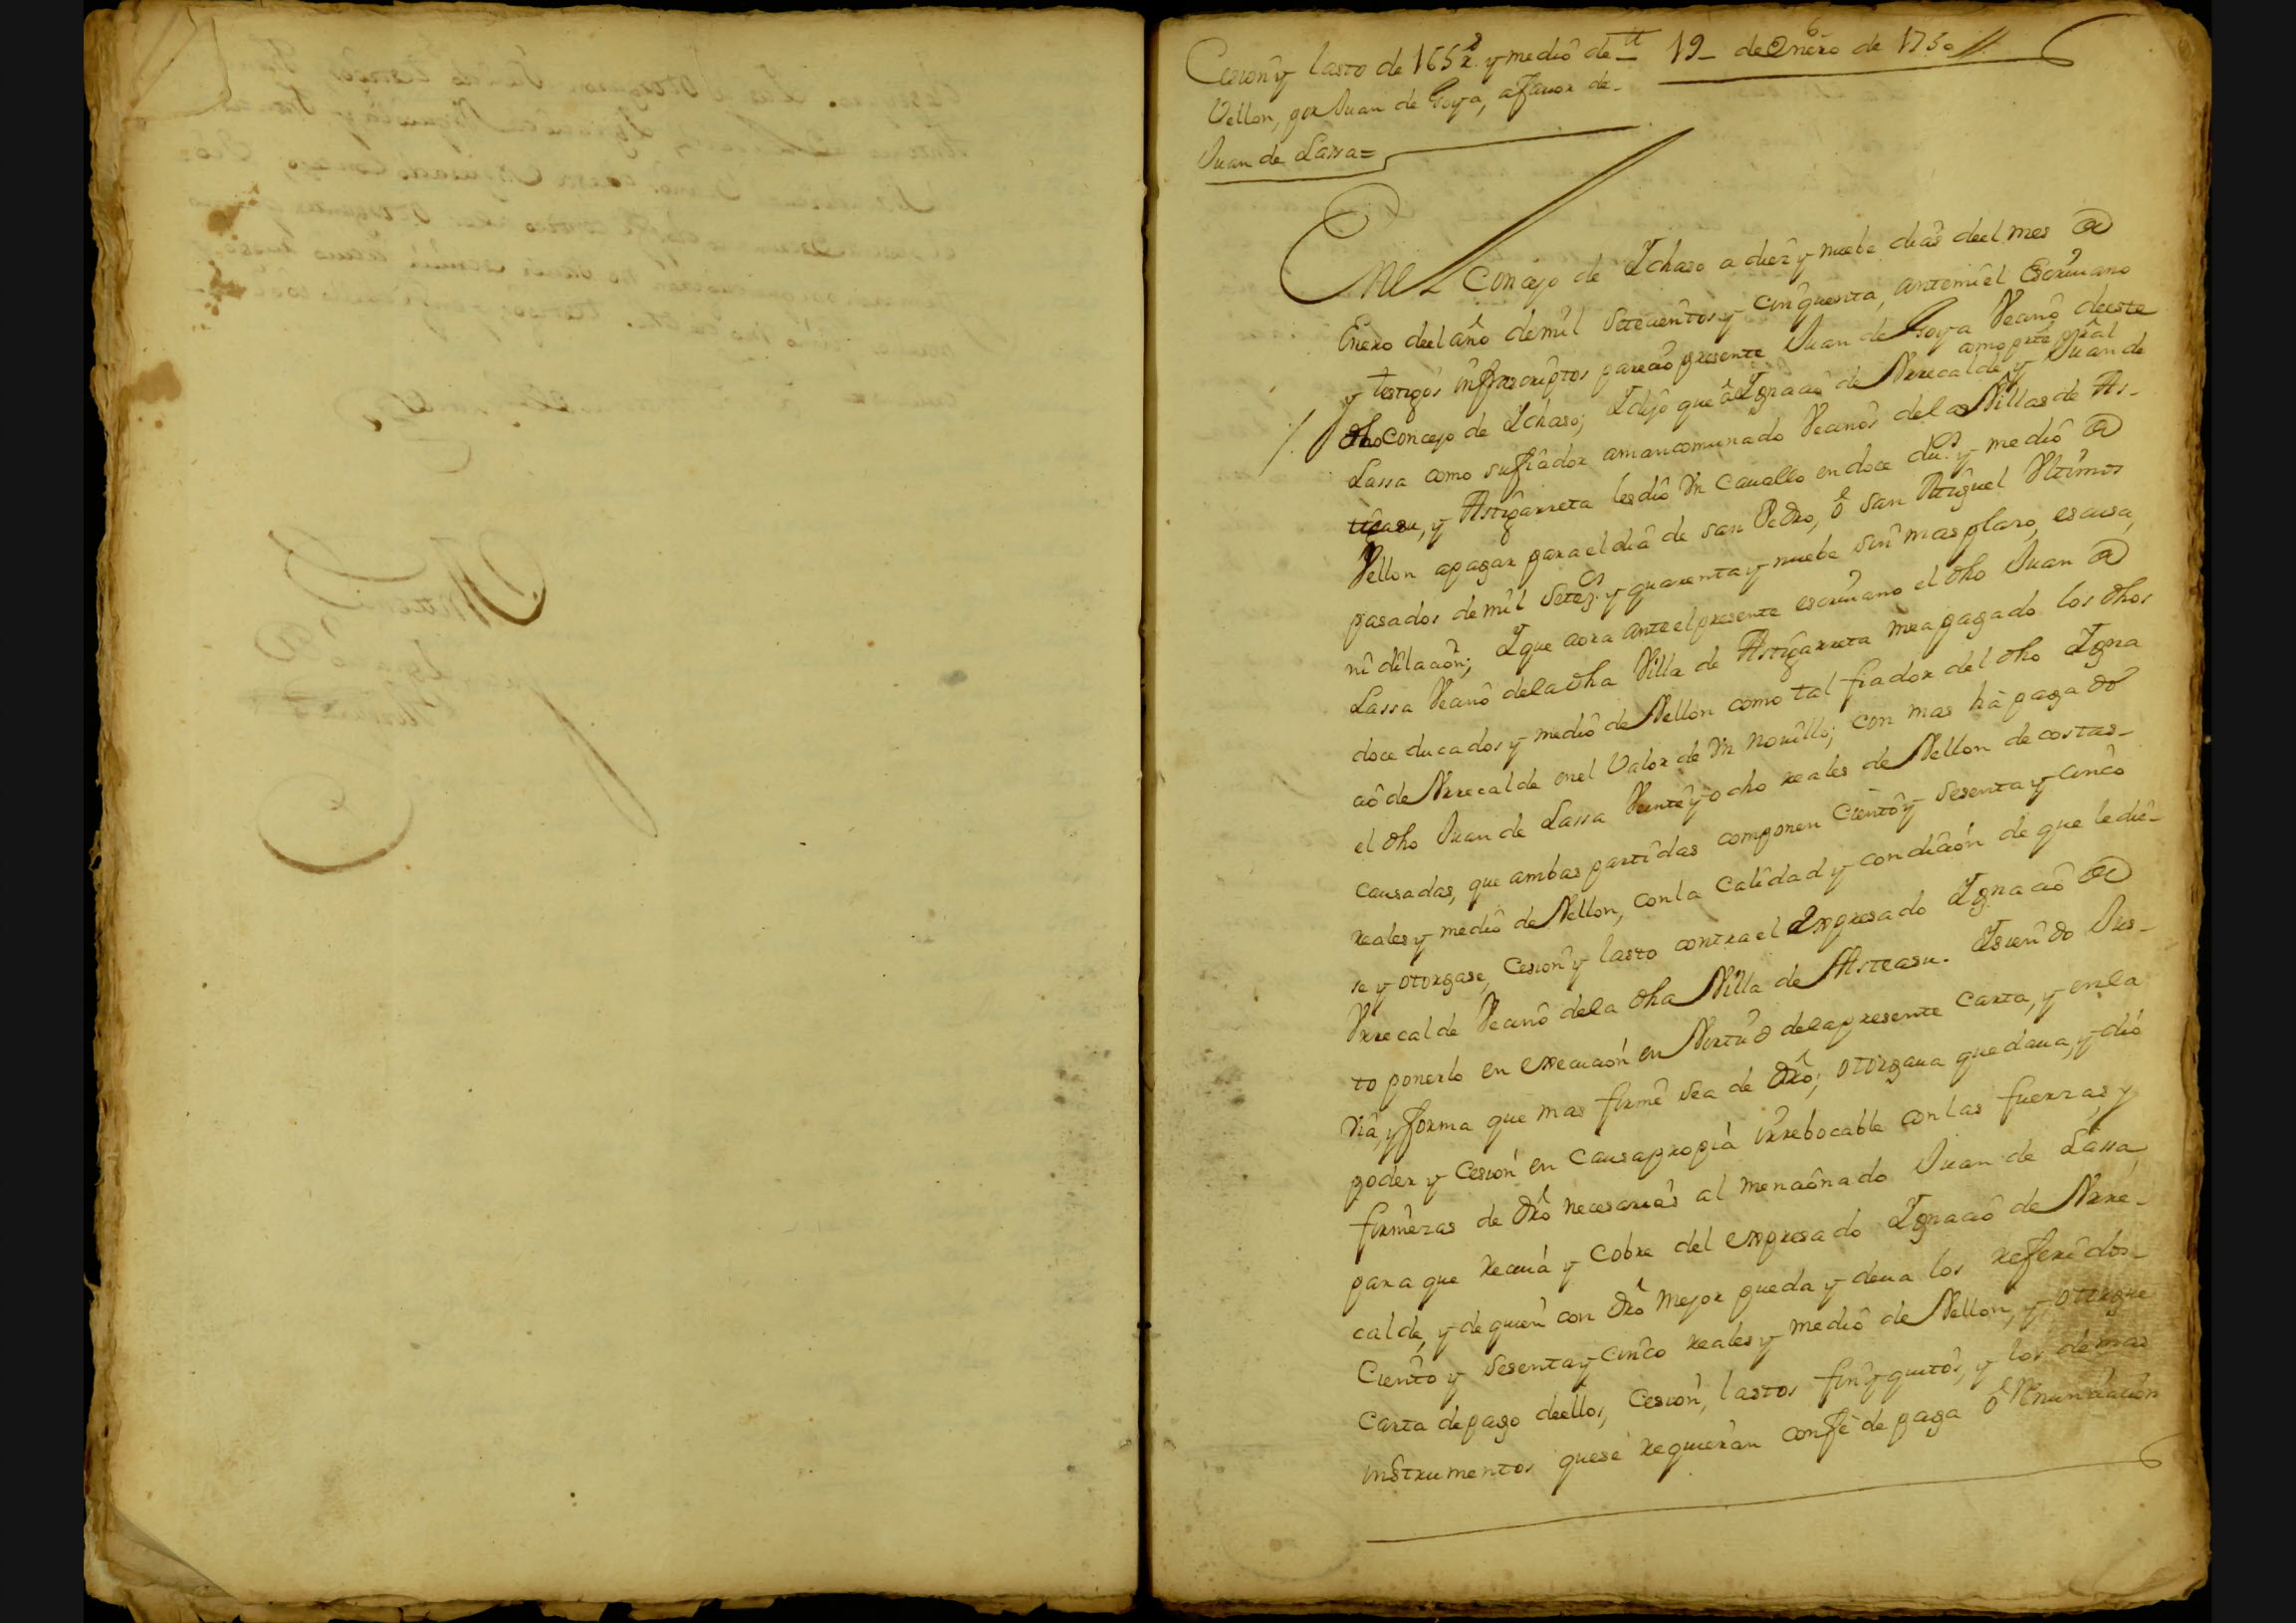 Cesion y lasto de 165 r.s y medio de
Vellon, por Juan de Goya, afauor de
Juan de Lassa=
19 de Enero de 1750
6
En el Concejo de Ychaso a diez y nuebe dias deel mes de
Enero deel año demil Setecientos y cinquenta, antemi el Escriuano
y testigos infrascriptos parecio presente Juan de Goya Vecino deeste
dho Concejo de Ychaso; Y dijo que â Ygnacio de Vrrecalde, y Juan de
como prâl
Lassa como sufiador amancomunado Vecinos delas Villas de As-
teasu, y Astigarreta les dio Vn Cauallo en doce du.s y medio de
Vellon apagar para el dia de san Pedro, ô san Miguel Vltimos
pasados de mil Setez.s y quarenta y nuebe sin mas plazo, escusa,
ni dilacion; Y que aora ante el presente escriuano el dho Juan de
Lassa Vecino dela dha Villa de Astigarreta mea pagado los dhos
doce ducados y medio de Vellon como tal fiador del dho Ygna
cio de Vrrecalde en el Valor de Vn nouillo; con mas hà pagado
el dho Juan de Lassa Veinte y ocho reales de Vellon de costas
causadas, que ambas partidas componen Ciento y Sesenta y cinco
reales y medio de Vellon, con la Calidad y condicion de que le die-
se y otorgase, Cesion y lasto contra el Expresado Ygnacio de
Vrrecalde Vecino dela dha Villa de Asteasu. Ysiendo Jus-
to ponerlo en execucion en Virtud dela presente Carta, y en la
via, y forma que mas firme sea de dro; otorgaua que daua, y dió
poder y Cesion en Causa propia irrebocable con las fuerzas, y
firmezas de dro necesarias al mencionado Juan de Lassa,
para que reciua y Cobre del expresado Ygnacio de Vrre-
calde, y de quien con dro Mejor pueda y deua los referidos
Ciento y Sesenta y Cinco reales y medio de Vellon, y otorgue
Carta de pago deellos, Cesion, lastos finyquitos, y los demas
instrumentos quese requieran con fè de paga ô Renunciacion